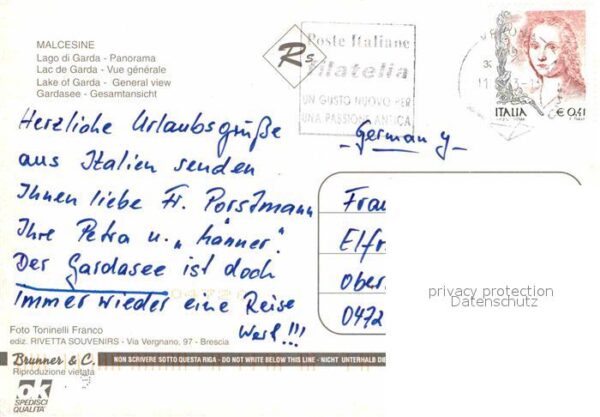 MALCESINE
Lago di Garda - Panorama
Lac de Garda - Vue générale
Lake of Garda - General view
Gardasee - Gesamtansicht
Rs.
Poste Italiane
filatelia
UN GUSTO NUOVO PER
UNA PASSIONE ANTICA
ITALIA
€ 0,41
Germany
Herzliche Urlaubsgrüße
aus Italien senden
Ihnen liebe Fr. Porstmann
Ihre Petra u. „Männer".
Der Gardasee ist doch
immer wieder eine Reise
Wert!!!
Frau
Elfr
Ober
0472
privacy protection
Datenschutz
Foto Toninelli Franco
ediz. RIVETTA SOUVENIRS - Via Vergnano, 97 - Brescia
Brunner & C.
Riproduzione vietata
NON SCRIVERE SOTTO QUESTA RIGA - DO NOT WRITE BELOW THIS LINE - NICHT UNTERHALB DIE
ok
SPEDISCI
QUALITÀ